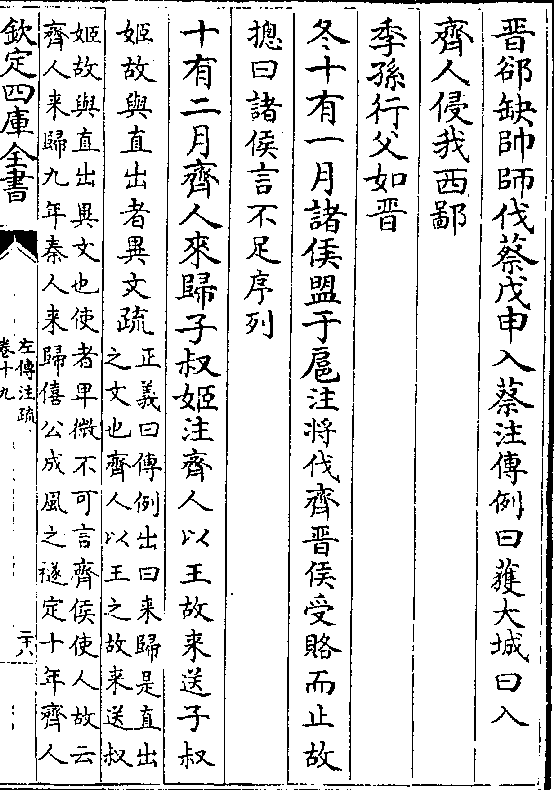 晉郤缺帥師伐蔡戊申入蔡注傳例曰獲大城曰入
齊人侵我西鄙
季孫行父如晉
冬十有一月諸侯盟于扈注將伐齊晉侯受賂而止故
摠曰諸侯言不足序列
十有二月齊人來歸子叔姬注齊人以王故来送子叔
姬故與直出者異文疏
正義曰傳例出曰来歸是直出
之文也齊人以王之故来送叔
姬故與直出異文也使者卑微不可言齊侯使人故云
齊人来歸九年秦人来歸僖公成風之禭定十年齊人
欽定四庫全書
左傳注疏
卷十九